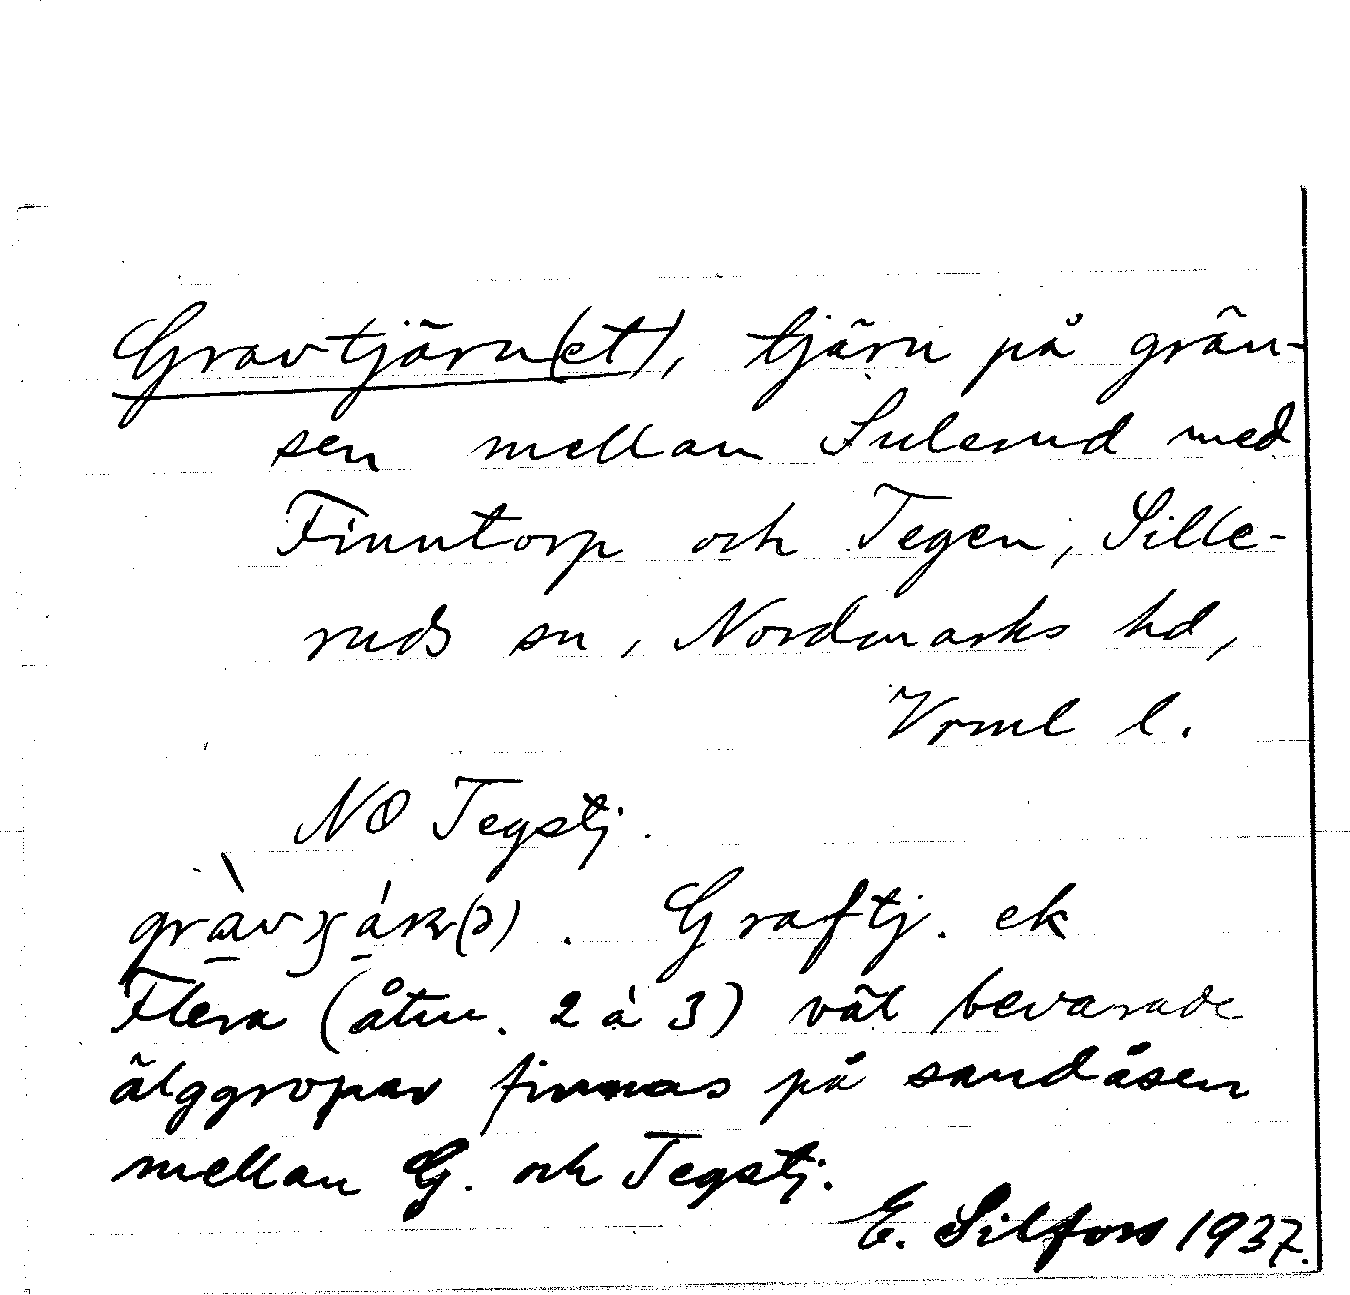 Gravtjärn(et), tjärn på grän-
sen mellan Sulerud med
Finntorp och Tegen, Sille-
ruds sn, Nordmarks hd,
Vrml l.
NO Tegstj.
Graftj. ek
Flera (åtm. 2 à 3) väl bevarade
älggropar finnas på sandåsen
mellan G. och Tegstj.
E. Silfors 1937.